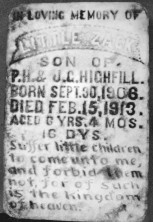 IN LOVING MEMORY OF
SON OF
P.H. & J.C. HIGHFILL.
BORN SEPT. 30, 1906.
DIED FEB. 15, 1913.
AGED 6 YRS. 4 MOS.
16 DYS.
Suffer little children
to come unto me,
and forbid them
not, for of such
is the kingdom
of heaven.